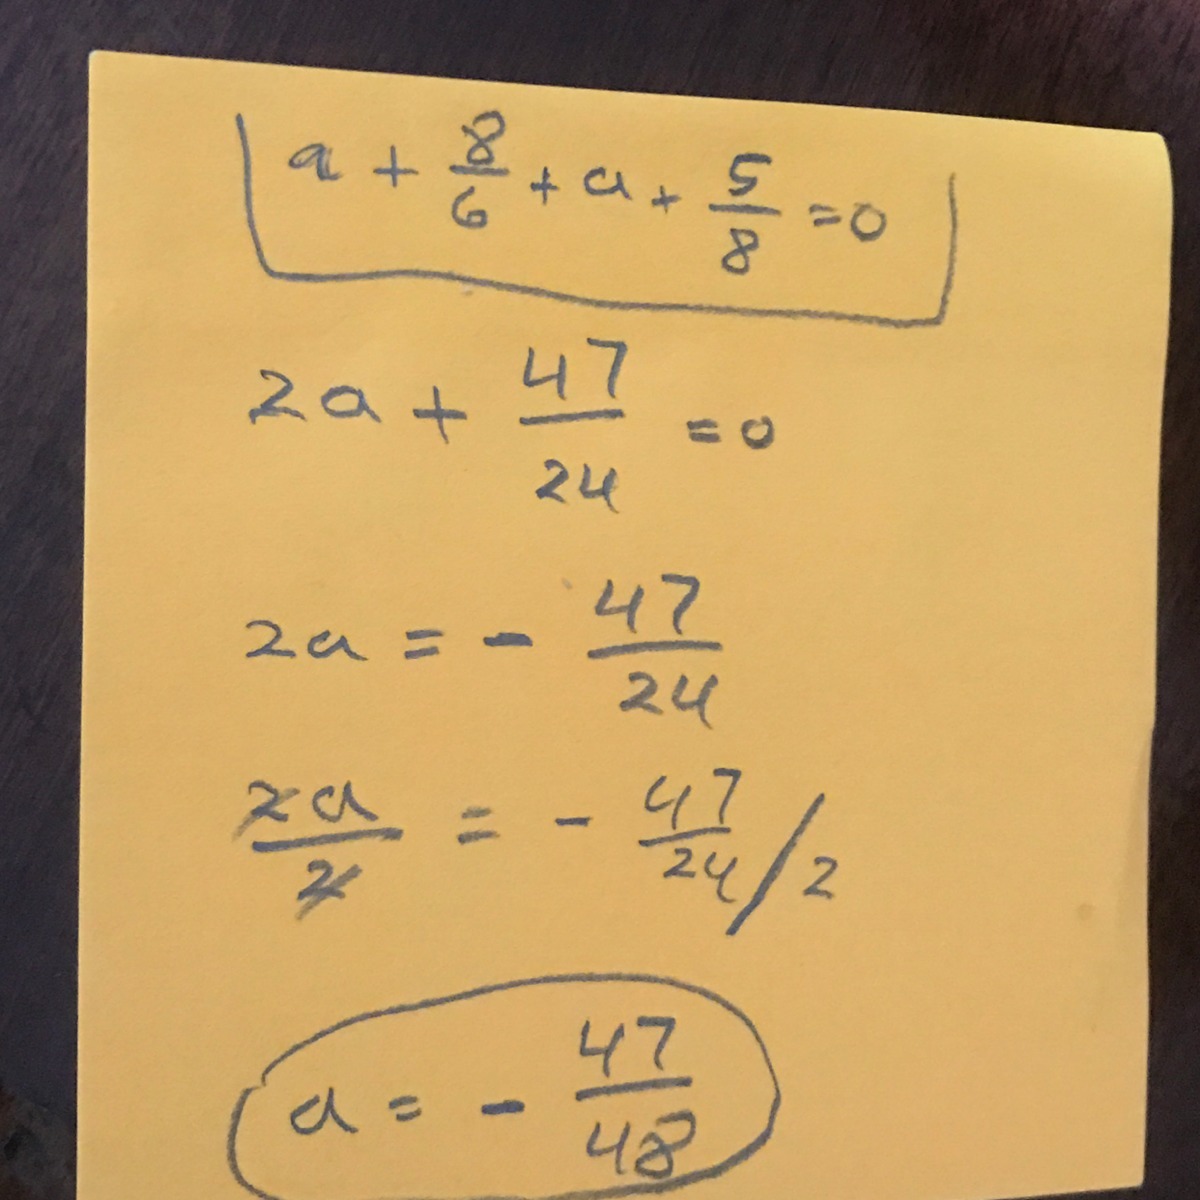 a + 8/6 + a + 5/8 = 0
2a + 47/24 = 0
2a = - 47/24
2a/2 = - 47/24 / 2
a = - 47/48